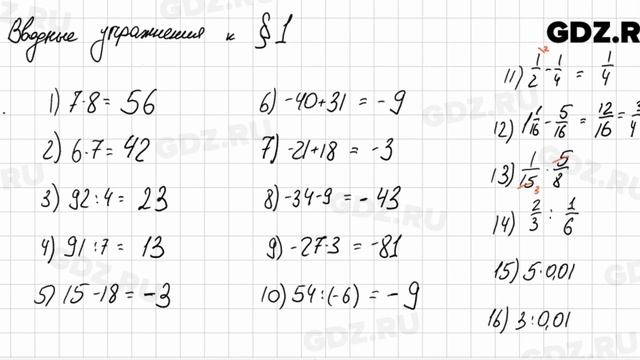 Вводные упражнения к §1
GDZ.RU
1) 7·8 = 56
2) 6·7 = 42
3) 92:4 = 23
4) 91:7 = 13
5) 15-18 = -3
6) -40+31 = -9
7) -21+18 = -3
8) -34-9 = -43
9) -27·3 = -81
10) 54:(-6) = -9
11) 1/2 - 1/4 = 1/4
12) 1 1/16 - 5/16 = 12/16 = 3/4
13) 1/15 · 5/8
14) 2/3 : 1/6
15) 5·0,01
16) 3:0,01